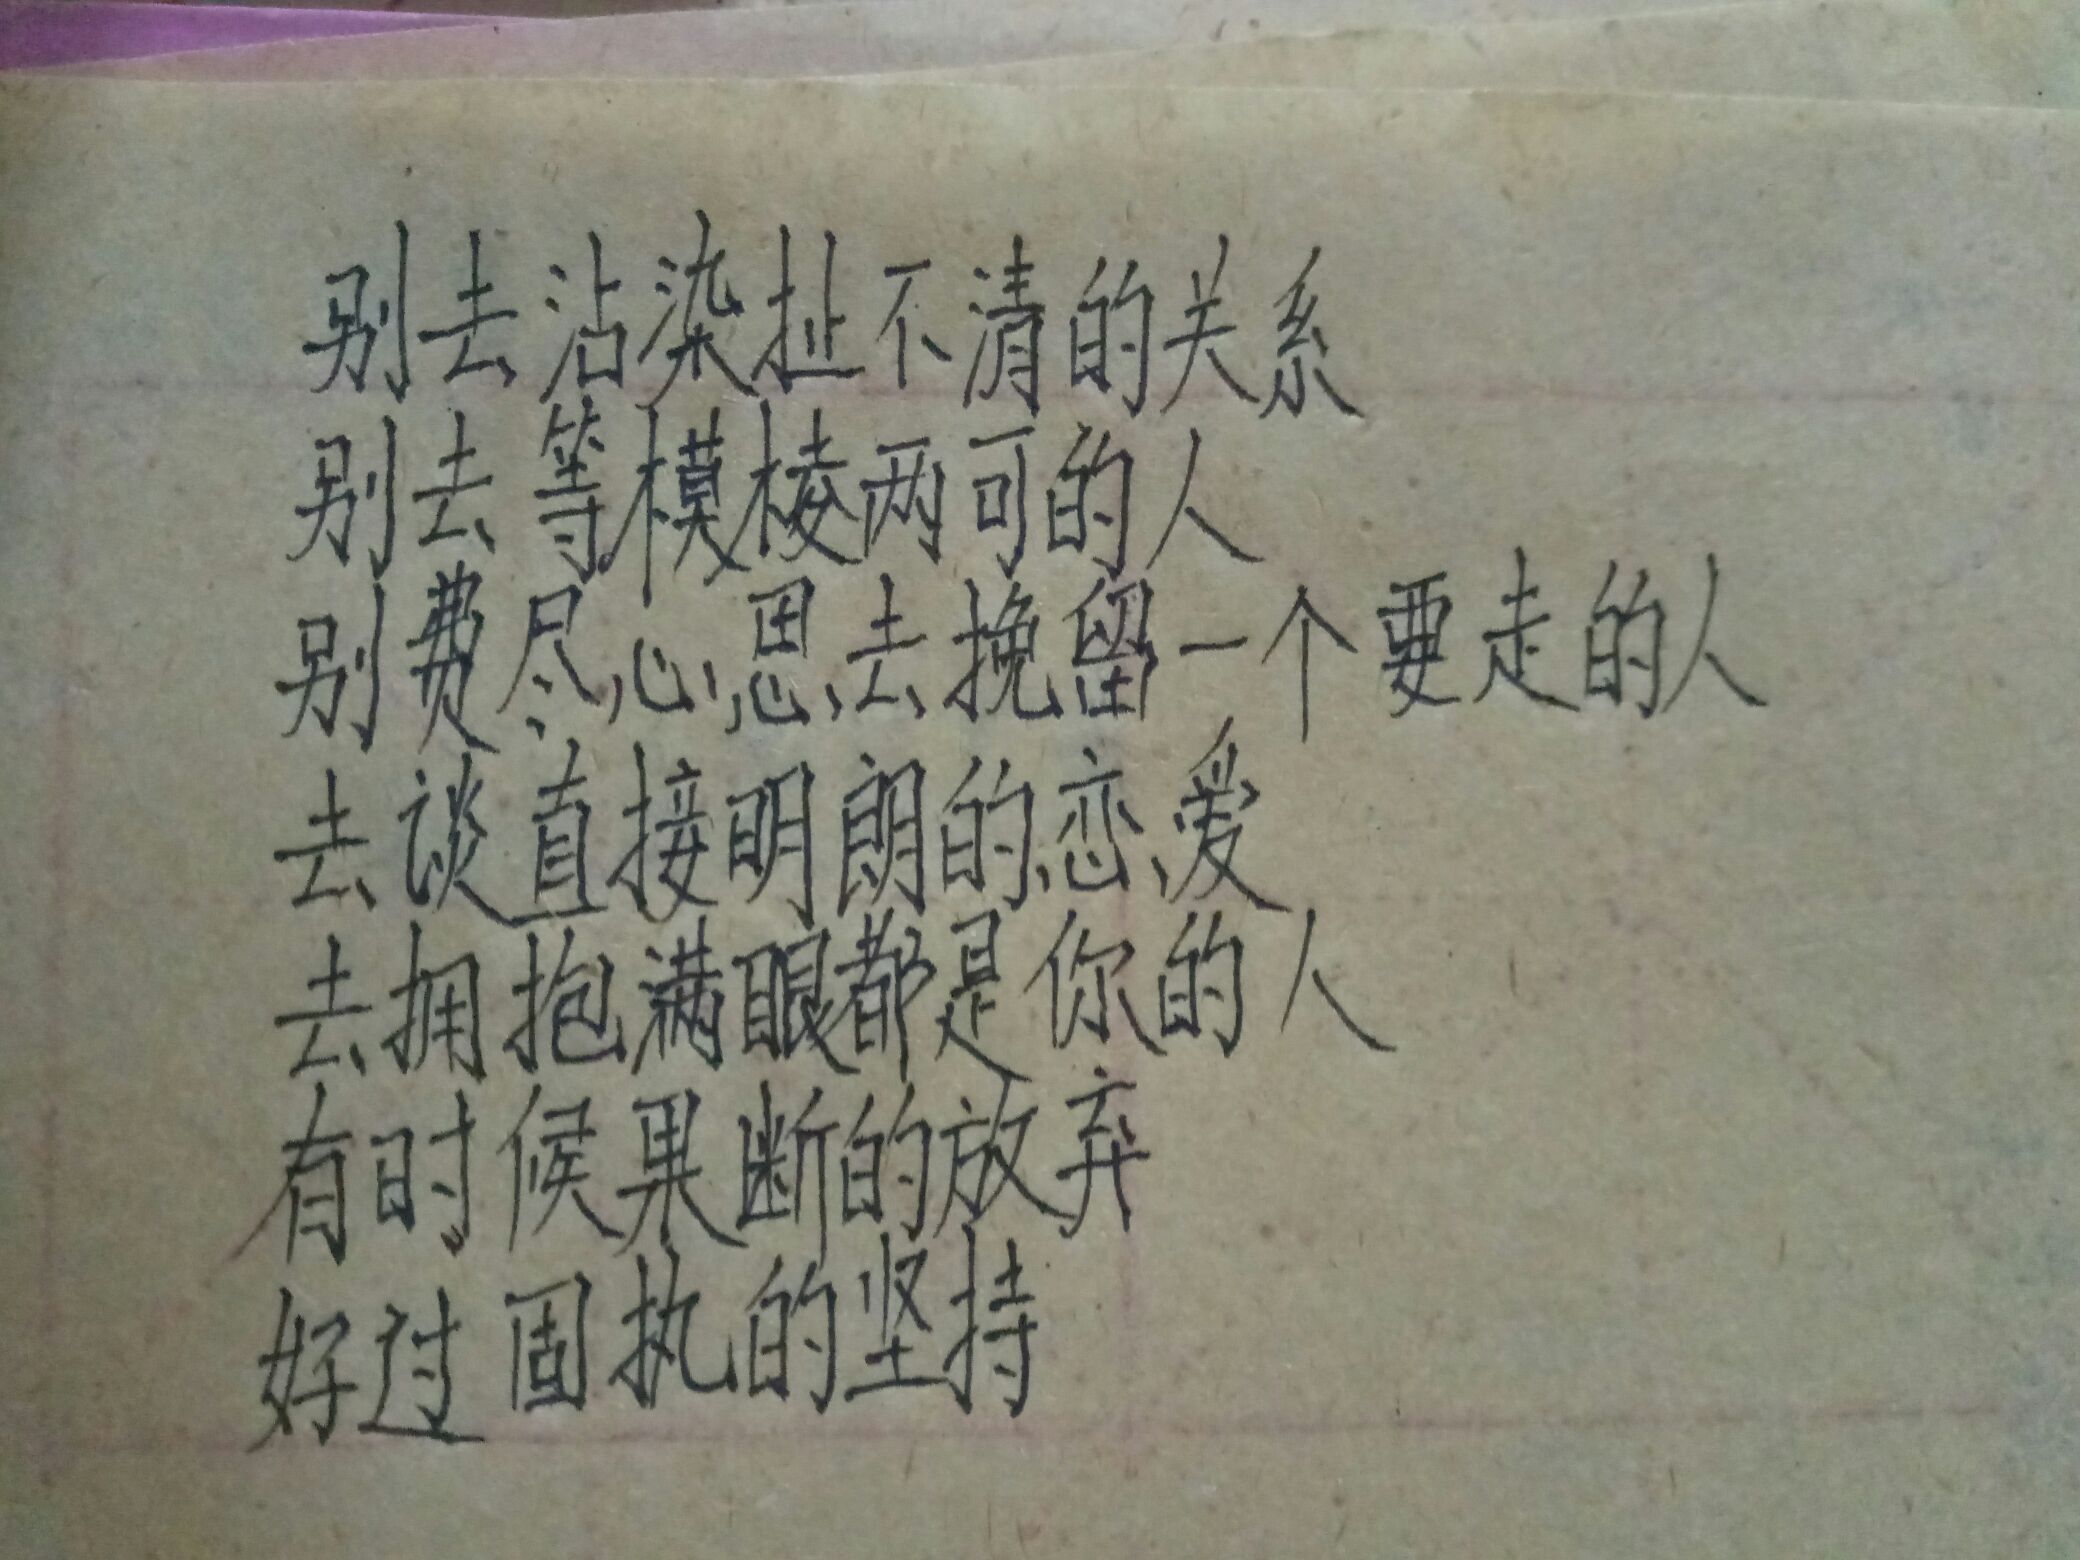 别去沾染扯不清的关系
别去等模棱两可的人
别费尽心思去挽留一个要走的人
去谈直接明朗的恋爱
去拥抱满眼都是你的人
有时候果断的放弃
好过固执的坚持